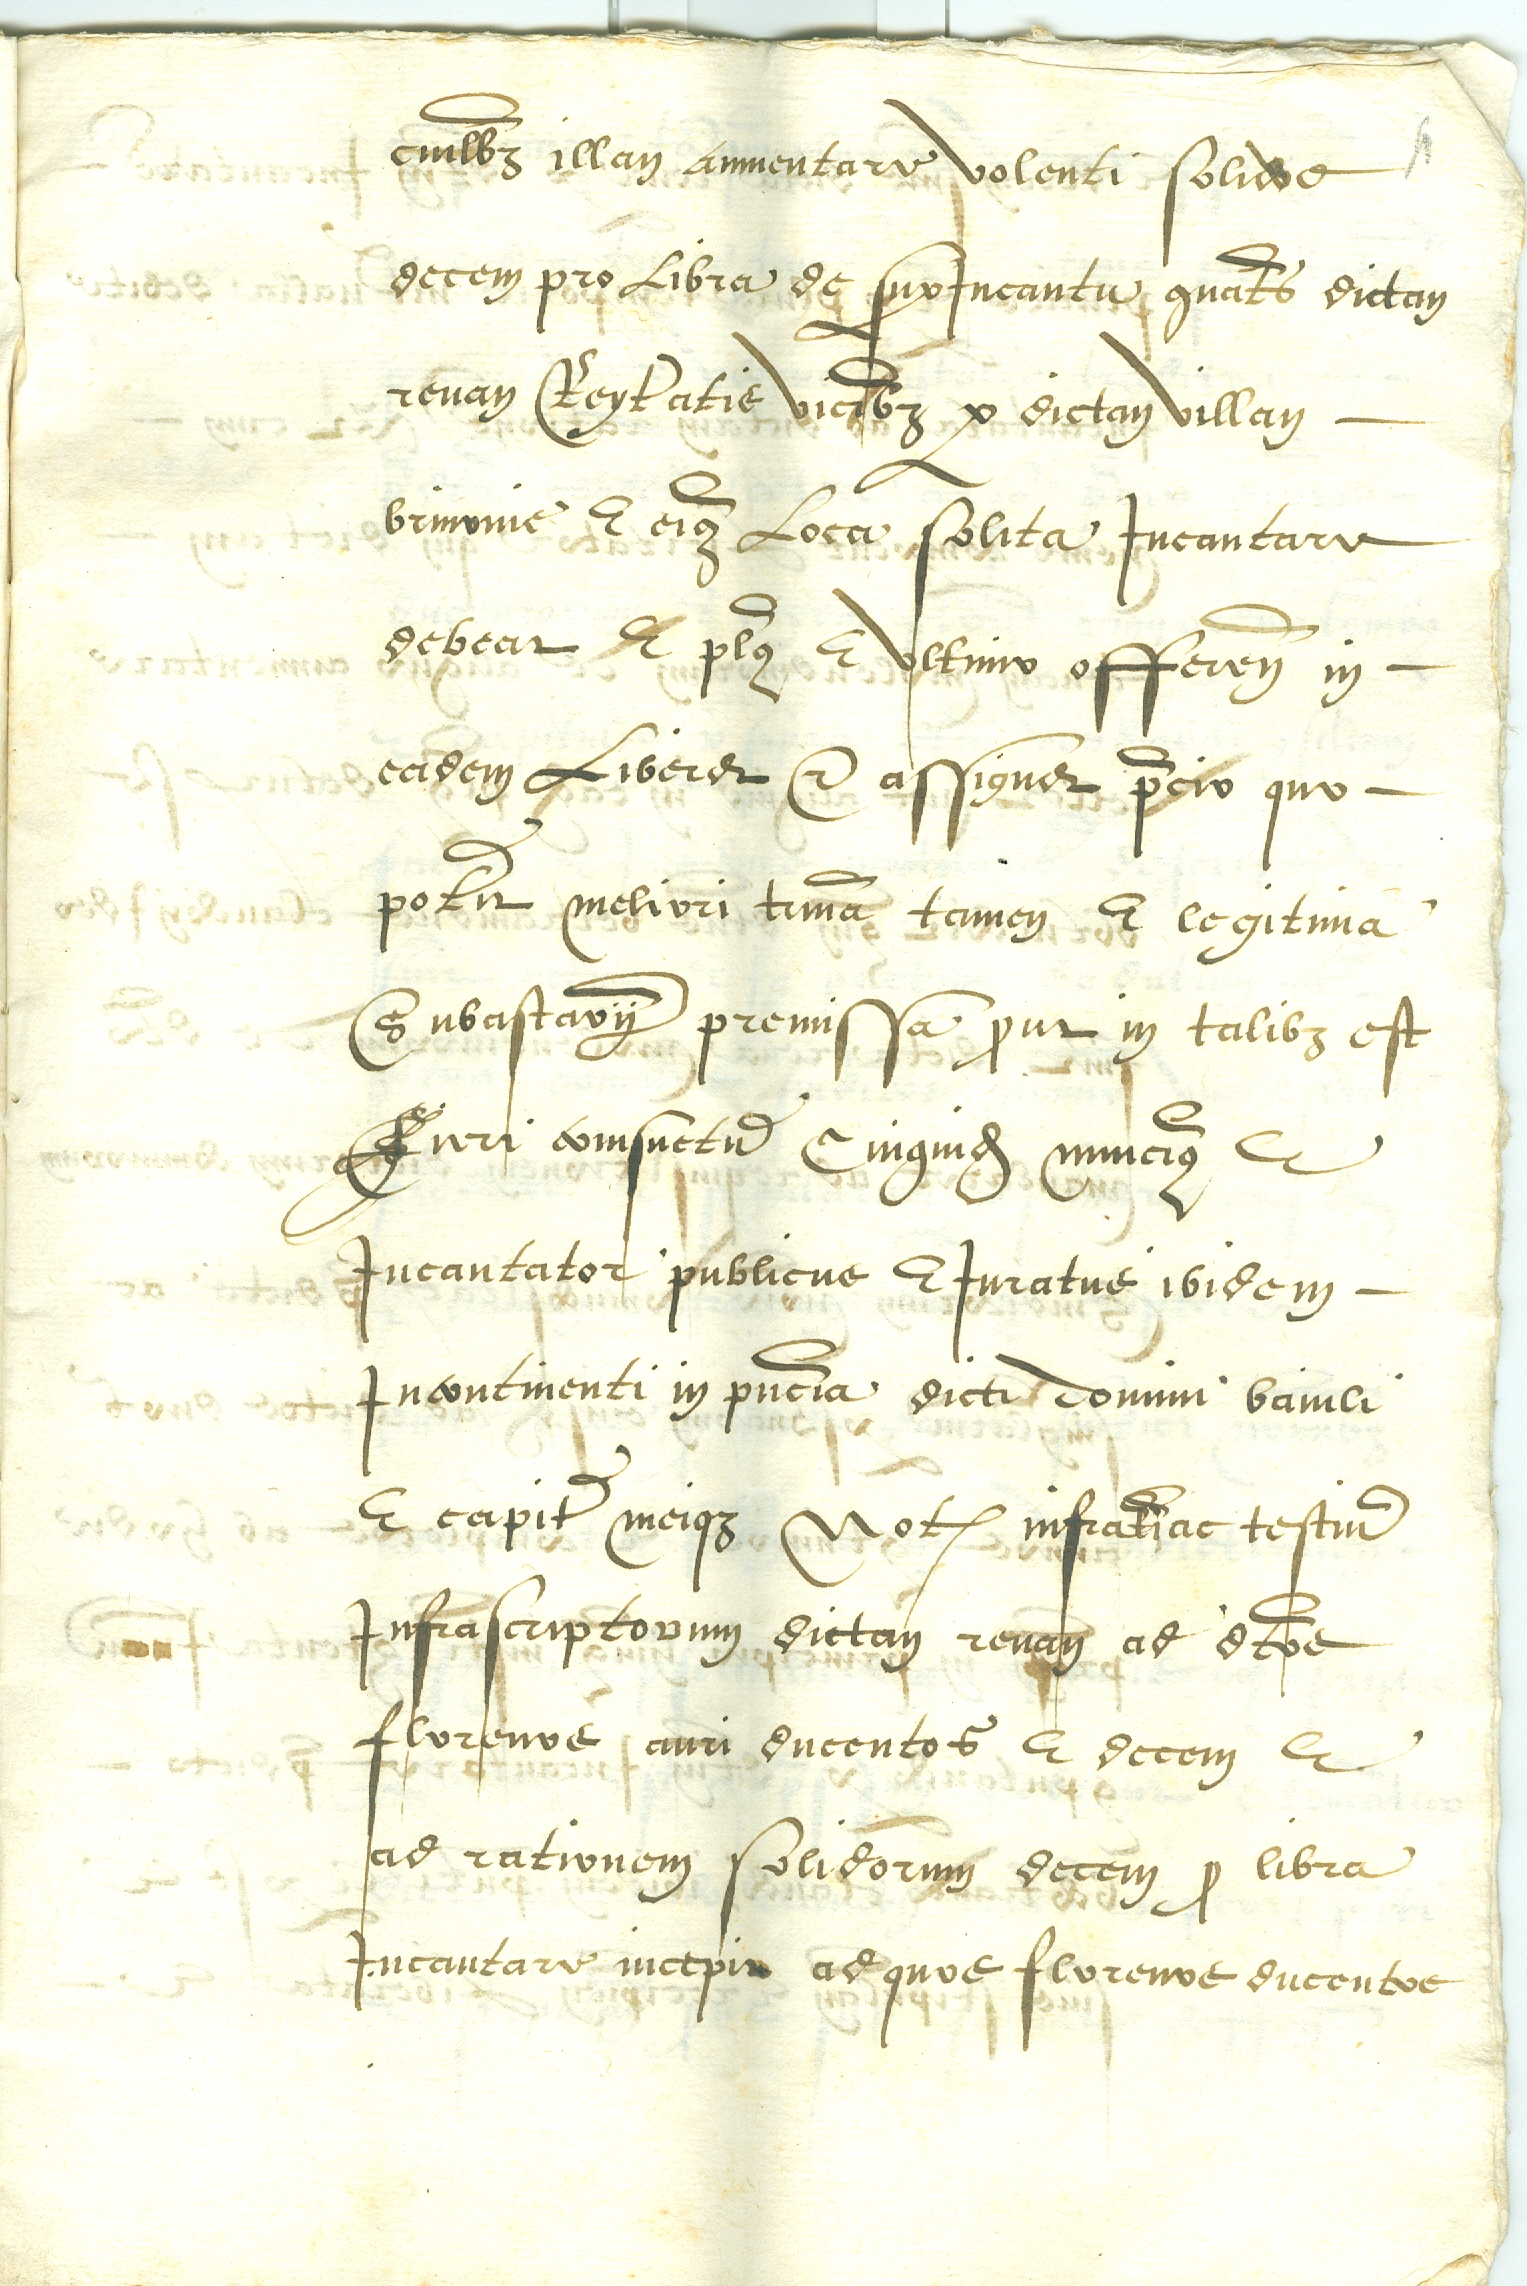 cuilibz illam aumentare volenti solidos
decem pro Libra de suo Incantu quatꝰ dictam
revam Reyteratis vicibz per dictam villam
brinonie et eiꝰ Loca solita Incantare
debeat et pluri et ultimo offeren in
eadem Liberet et assignet precio quo
poterit meliori trina tamen et legitima
Subastacion premissa prout in talibz est
fieri consuetud Quiquid nunciꝰ et
Incantator publicus et Juratus ibidem
Incontinenti in pncia dicti domini baiuli
et capit meiqz Not infrati ac testium
Infrascriptorum dictam revam ad dictos
florenos auri ducentos et decem et
ad rationem solidorum decem pro libra
Incantare incepit ad quos florenos ducentos